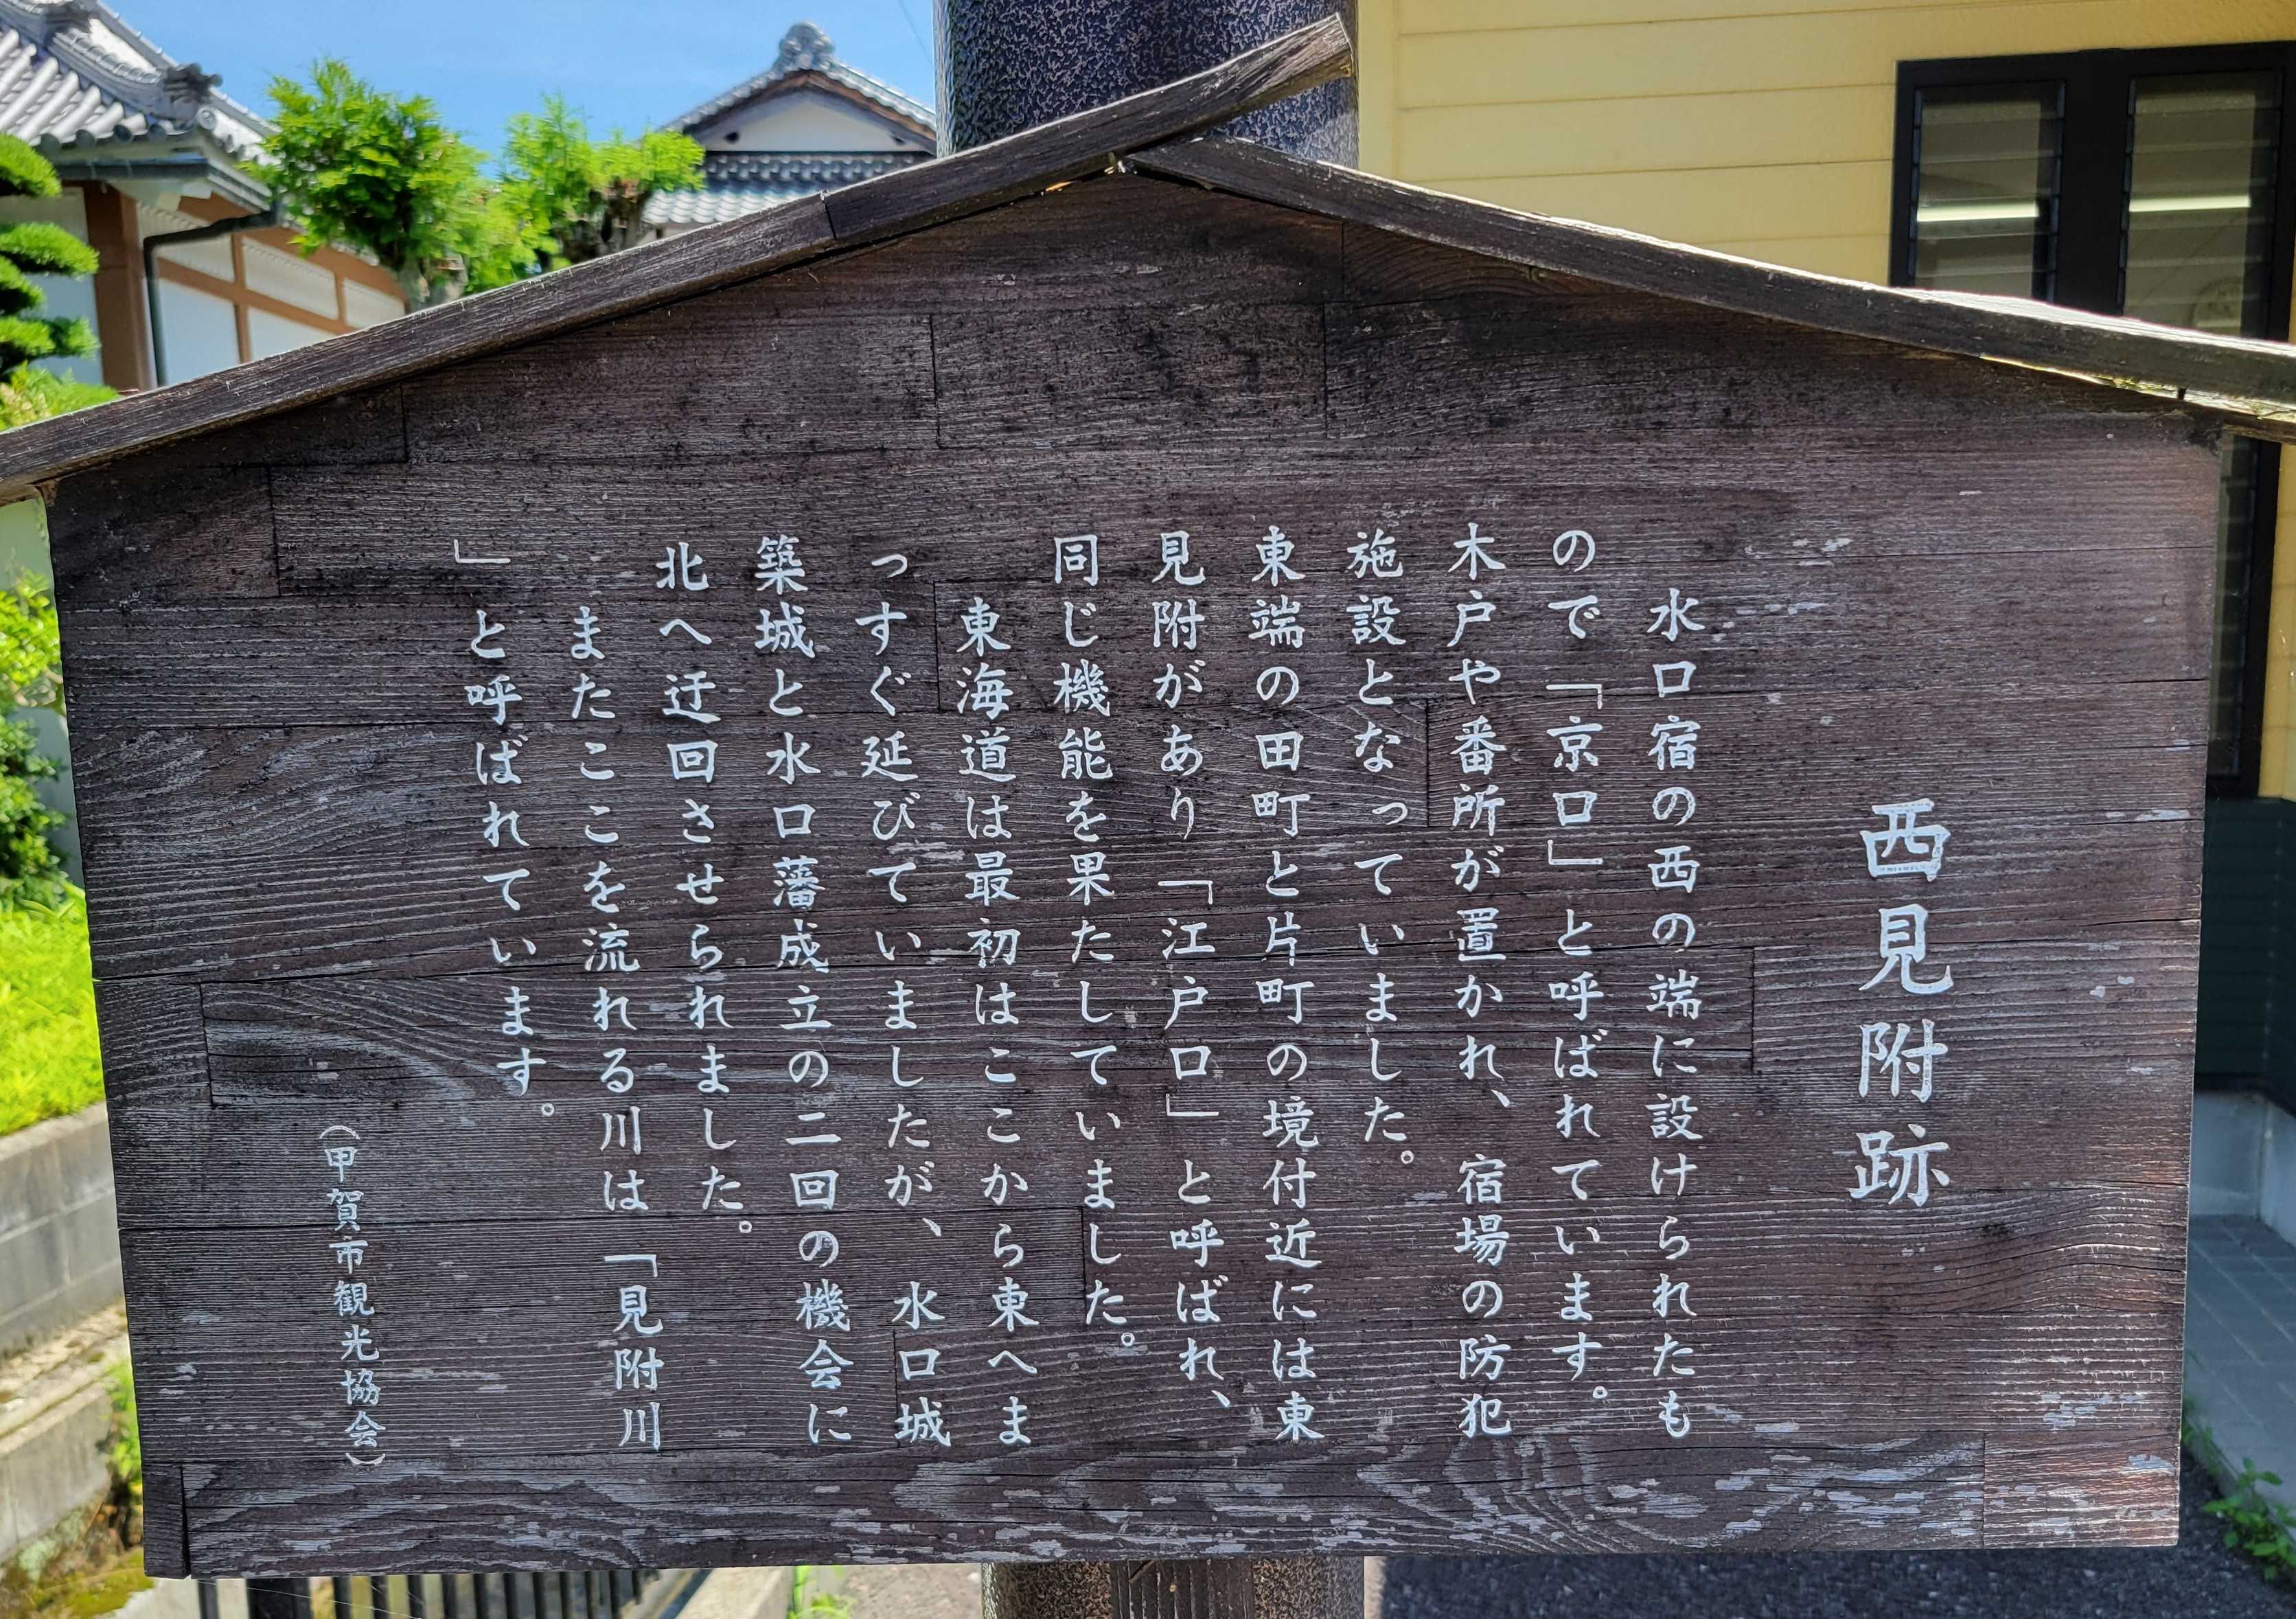 西見附跡
水口宿の西の端に設けられたも
ので「京口」と呼ばれています。
木戸や番所が置かれ、宿場の防犯
施設となっていました。
東端の田町と片町の境付近には東
見附があり「江戸口」と呼ばれ、
同じ機能を果たしていました。
東海道は最初はここから東へま
っすぐ延びていましたが、水口城
築城と水口藩成立の二回の機会に
北へ迂回させられました。
またここを流れる川は「見附川
」と呼ばれています。
(甲賀市観光協会)